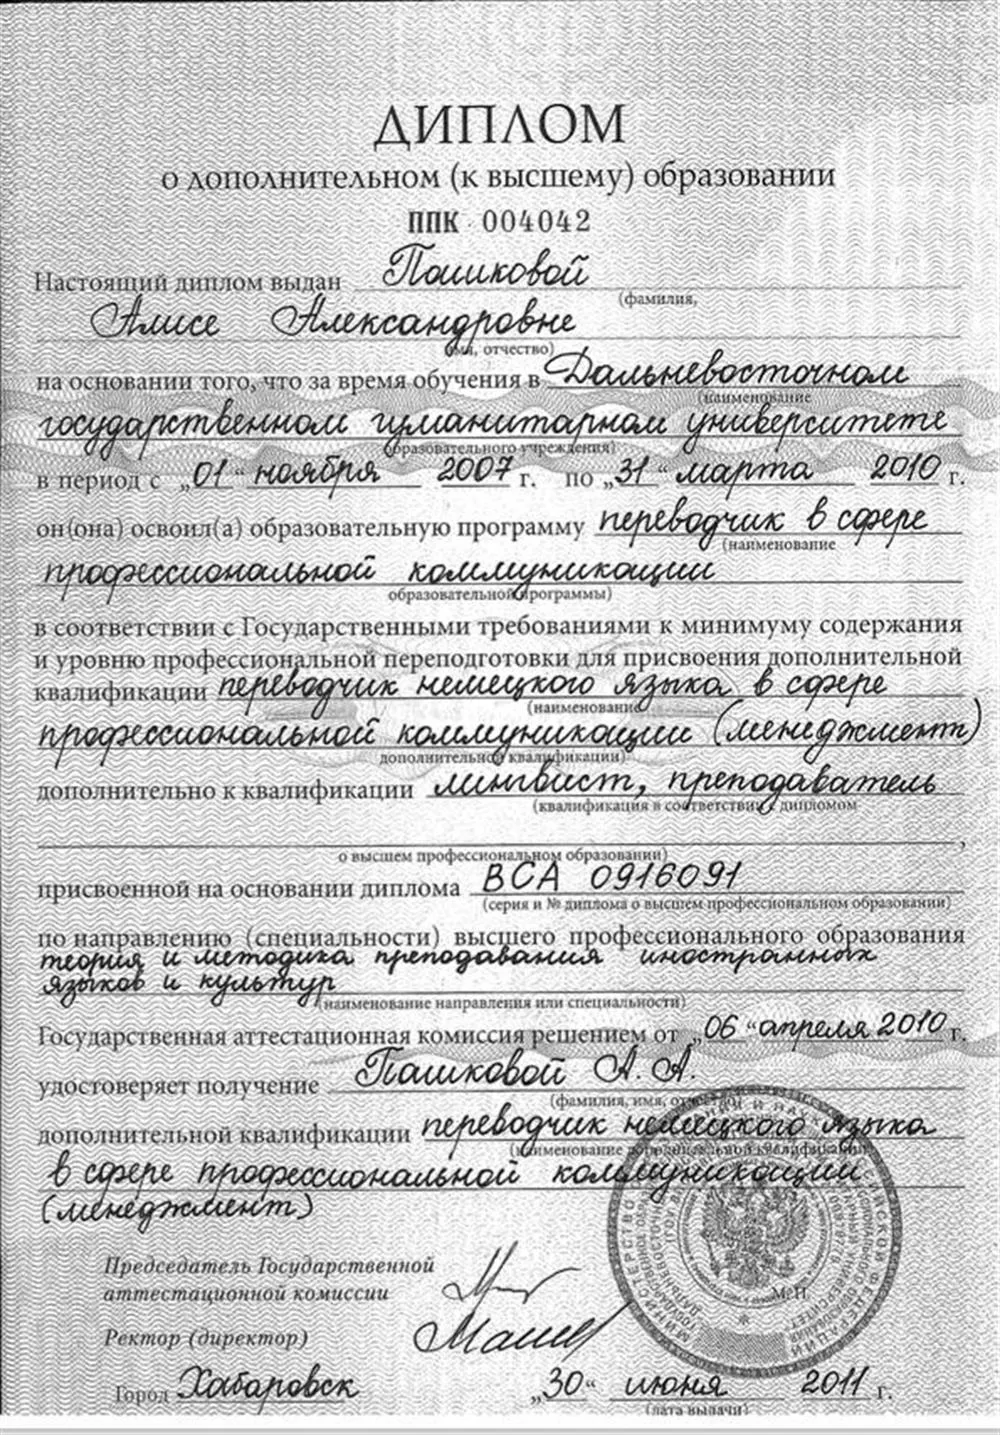 ДИПЛОМ
о дополнительном (к высшему) образовании
ППК 004042
Настоящий диплом выдан Пашковой
(фамилия,
Алисе Александровне
(имя, отчество)
на основании того, что за время обучения в Дальневосточном
(наименование
государственном гуманитарном университете
образовательного учреждения)
в период с „01“ ноября 2007 г. по „31“ марта 2010 г.
он(она) освоил(а) образовательную программу переводчик в сфере
(наименование
профессиональной коммуникации
образовательной программы)
в соответствии с Государственными требованиями к минимуму содержания
и уровню профессиональной переподготовки для присвоения дополнительной
квалификации переводчик немецкого языка в сфере
(наименование
профессиональной коммуникации (менеджмент)
дополнительной квалификации)
дополнительно к квалификации лингвист, преподаватель
(квалификация в соответствии с дипломом
,
о высшем профессиональном образовании)
присвоенной на основании диплома ВСА 0916091
(серия и № диплома о высшем профессиональном образовании)
по направлению (специальности) высшего профессионального образования
теория и методика преподавания иностранных
языков и культур
(наименование направления или специальности)
Государственная аттестационная комиссия решением от „06“ апреля 2010 г.
удостоверяет получение Пашковой А. А.
(фамилия, имя, отчество)
дополнительной квалификации переводчик немецкого языка
(наименование дополнительной квалификации)
в сфере профессиональной коммуникации
(менеджмент)
Председатель Государственной
аттестационной комиссии
М.П.
Ректор (директор)
Город Хабаровск „30“ июня 2011 г.
(дата выдачи)